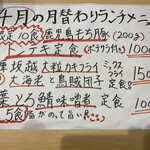 4月の月替わりランチメニュー
限定10食 鹿児島もち豚(200g)
トンテキ定食(ポテサラ付) 1000
津坂越え粒カキフライ ミックスフライ 150
大海老と烏賊団子 定食
葉とろ鯖味噌煮 定食 100
5食